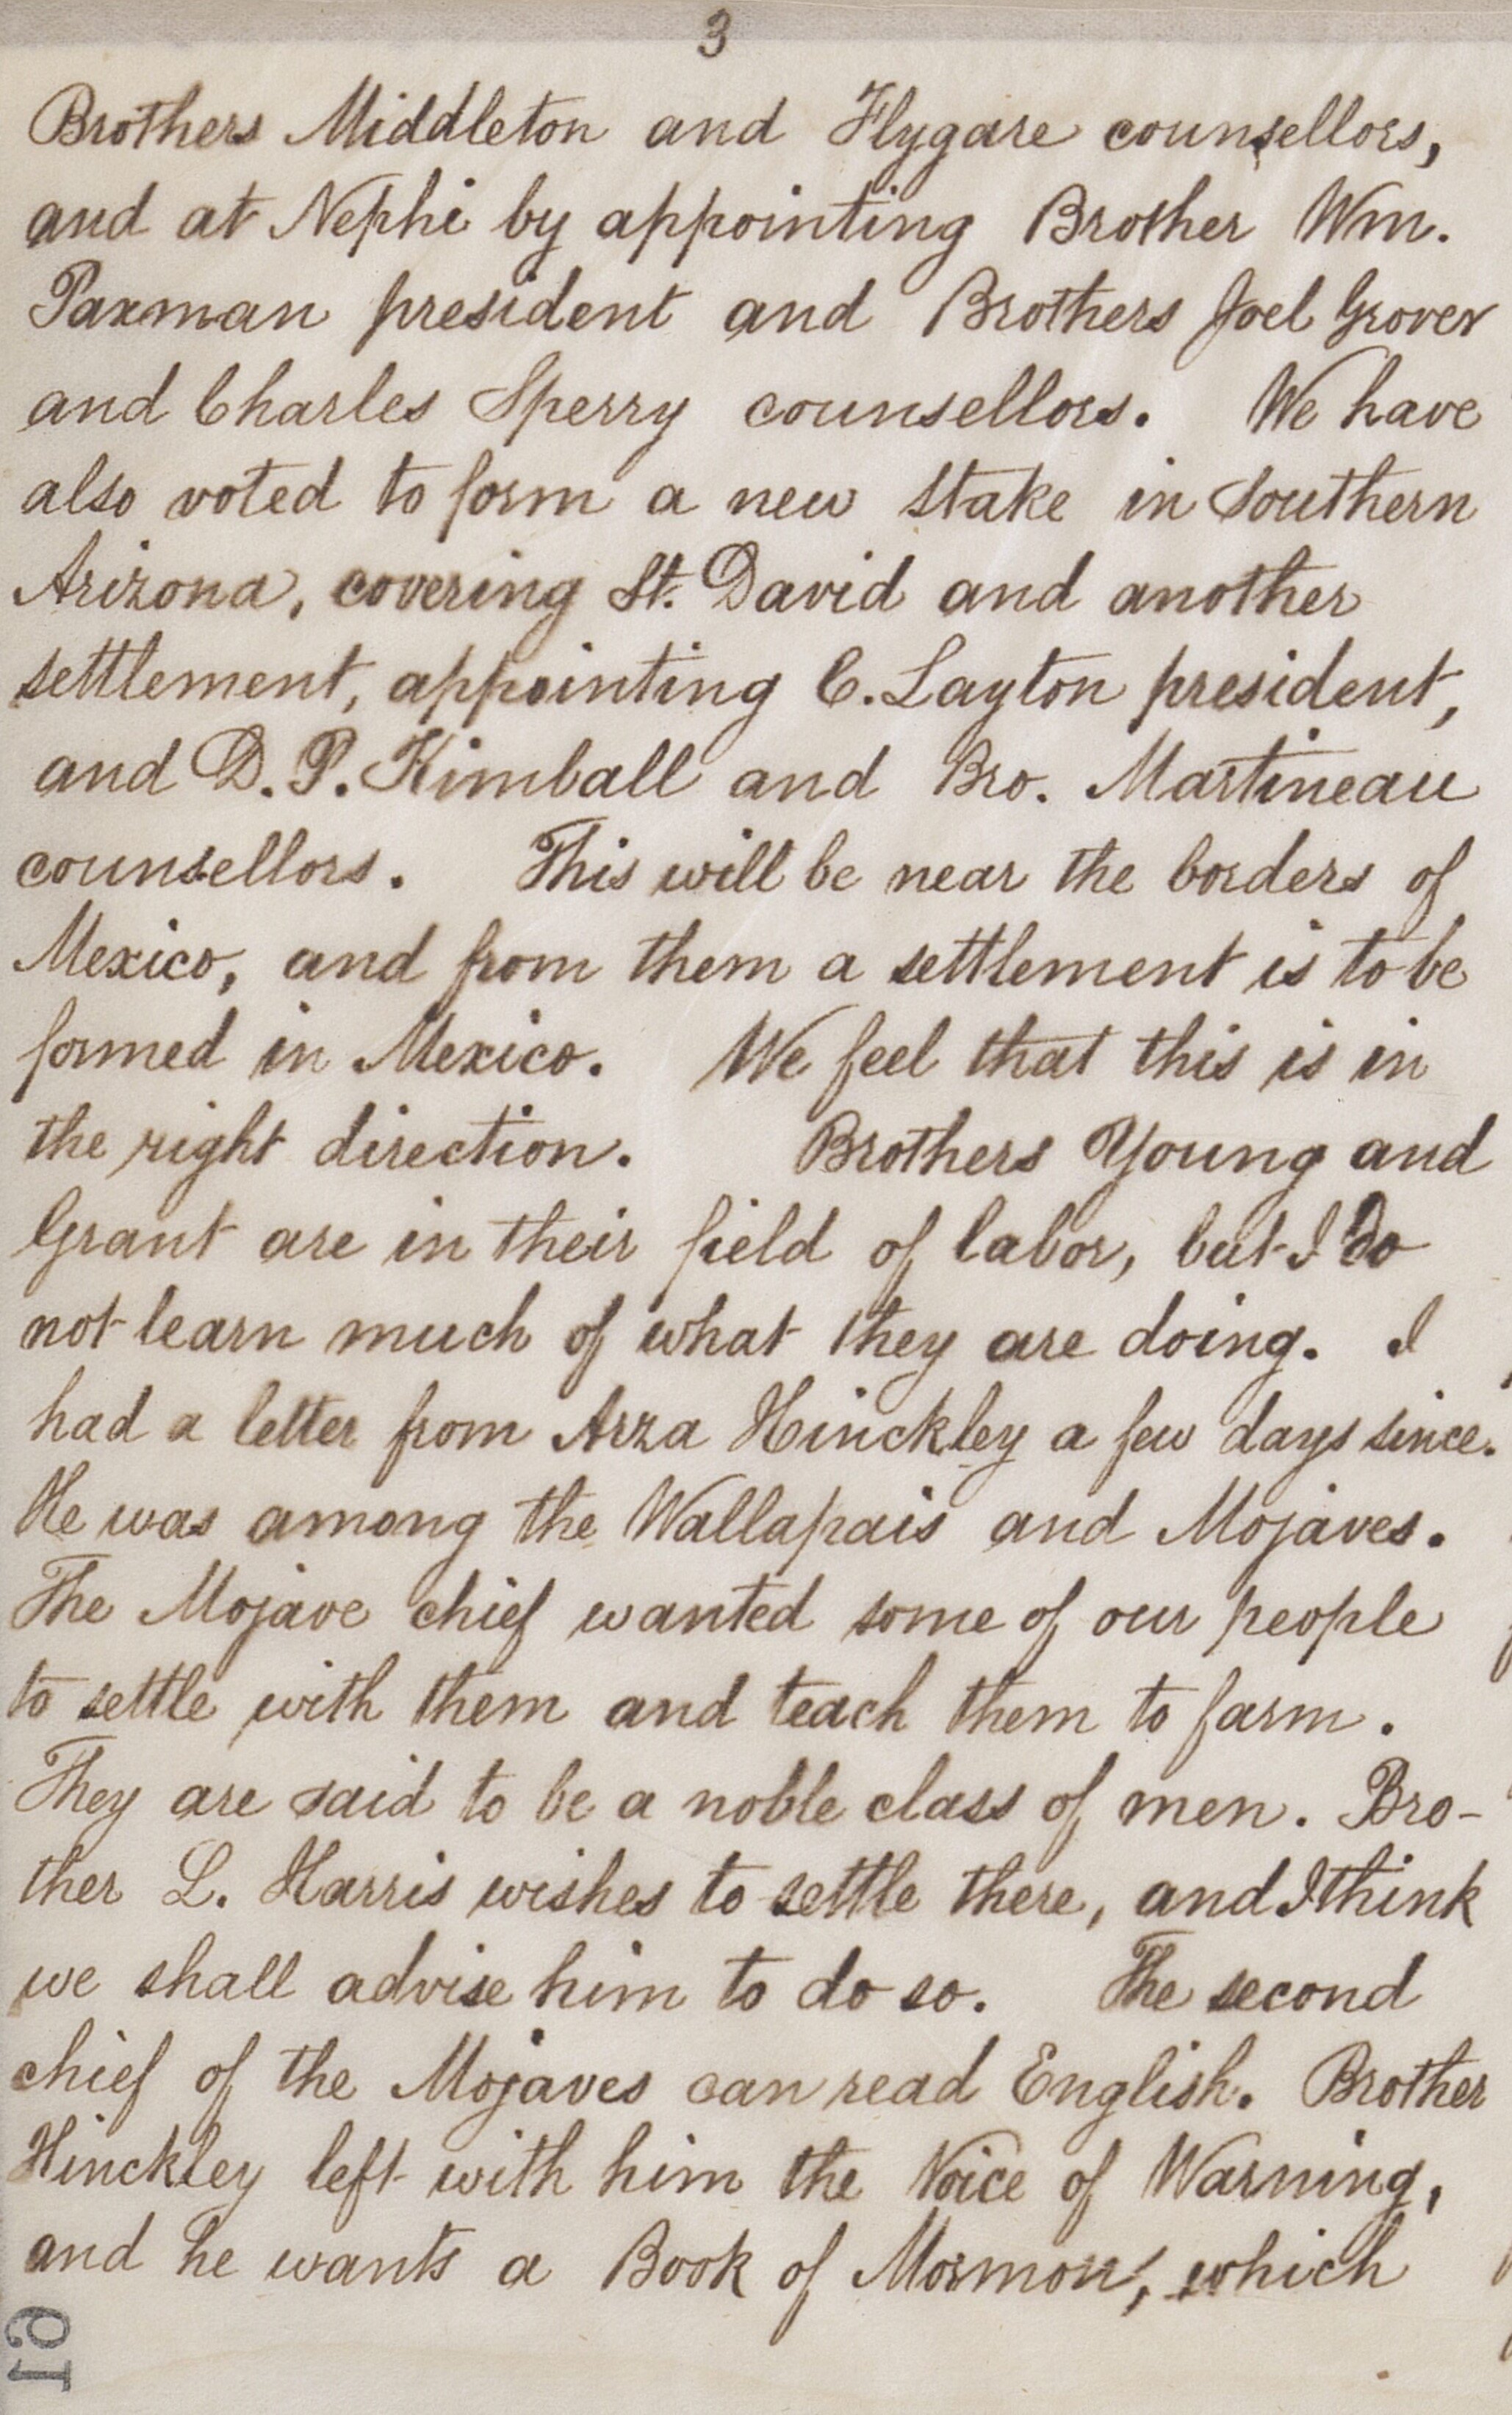 3
Brothers Middleton and Flygare counsellors,
and at Nephi by appointing Brother Wm.
Paxman president and Brothers Joel Grover
and Charles Sperry counsellors. We have
also voted to form a new stake in Southern
Arizona, covering St. David and another
settlement, appointing C. Layton president,
and D. P. Kimball and Bro. Martineau
counsellors. This will be near the borders of
Mexico, and from them a settlement is to be
formed in Mexico. We feel that this is in
the right direction. Brothers Young and
Grant are in their field of labor, but I do
not learn much of what they are doing. I
had a letter from Arza Hinckley a few days since.
He was among the Wallapais and Mojaves.
The Mojave chief wanted some of our people
to settle with them and teach them to farm.
They are said to be a noble class of men. Bro-
ther L. Harris wishes to settle there, and I think
we shall advise him to do so. The second
chief of the Mojaves can read English. Brother
Hinckley left with him the Voice of Warning,
and he wants a Book of Mormon, which
19